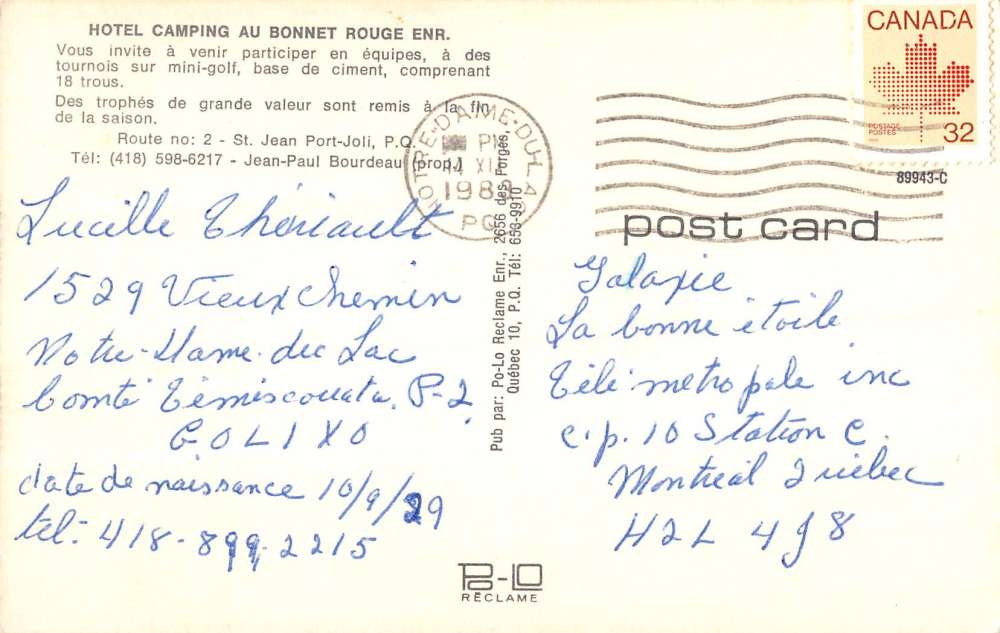 HOTEL CAMPING AU BONNET ROUGE ENR.
Vous invite à venir participer en équipes, à des
tournois sur mini-golf, base de ciment, comprenant
18 trous.
Des trophés de grande valeur sont remis à la fin
de la saison.
Route no: 2 - St. Jean Port-Joli, P.Q.
Tél: (418) 598-6217 - Jean-Paul Bourdeau (prop.)
Lucille Thériault
1529 Vieux Chemin
Notre-Dame-du Lac
Comté Témiscouata. P-2.
G.0L1X0
date de naissance 10/9/29
tél:- 418-899-2215
Pub par: Po-Lo Reclame Enr., 2656 des Forges,
Québec 10, P.Q. Tél: 653-9910
NOTRE-DAME-DU-LA
PM
14 XI
198
PQ
CANADA
POSTAGE
POSTES
32
89943-C
post card
Galaxie
La bonne étoile
Télé-métropole inc
c.p. 10 Station C.
Montréal Québec
H2L 4J8
Po-Lo
RÉCLAME